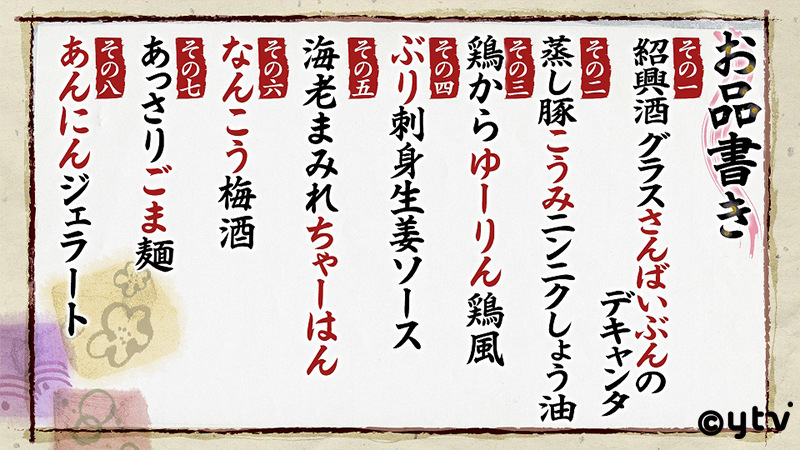 お品書き
その一
紹興酒 グラスさんばいぶんの
デキャンタ
その二
蒸し豚こうみニンニクしょう油
その三
鶏からゆーりん鶏風
その四
ぶり刺身生姜ソース
その五
海老まみれちゃーはん
その六
なんこう梅酒
その七
あっさりごま麺
その八
あんにんジェラート
©ytv